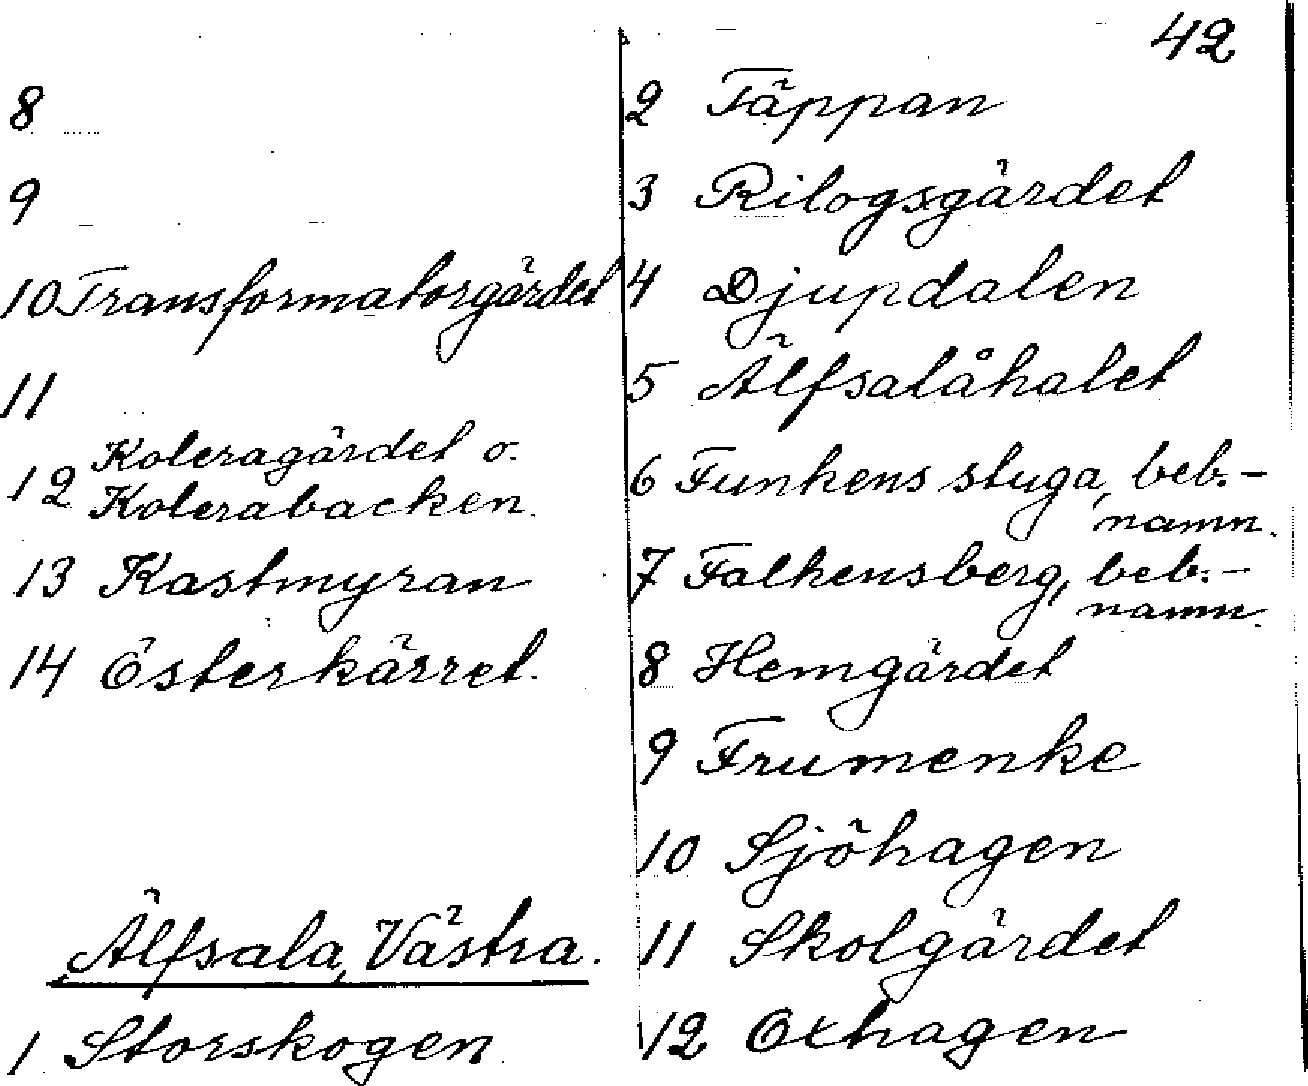 42
8
9
10 Transformatorgärdet
11
12 Koleragärdet o.
Kolerabacken.
13 Kastmyran
14 Österkärret.
Älfsala, Västra.
1 Storskogen
2 Täppan
3 Rilogsgärdet
4 Djupdalen
5 Älfsalåhalet
6 Funkens stuga, beb.-
namn.
7 Falkensberg, beb.-
namn.
8 Hemgärdet
9 Frumenke
10 Sjöhagen
11 Skolgärdet
12 Oxhagen